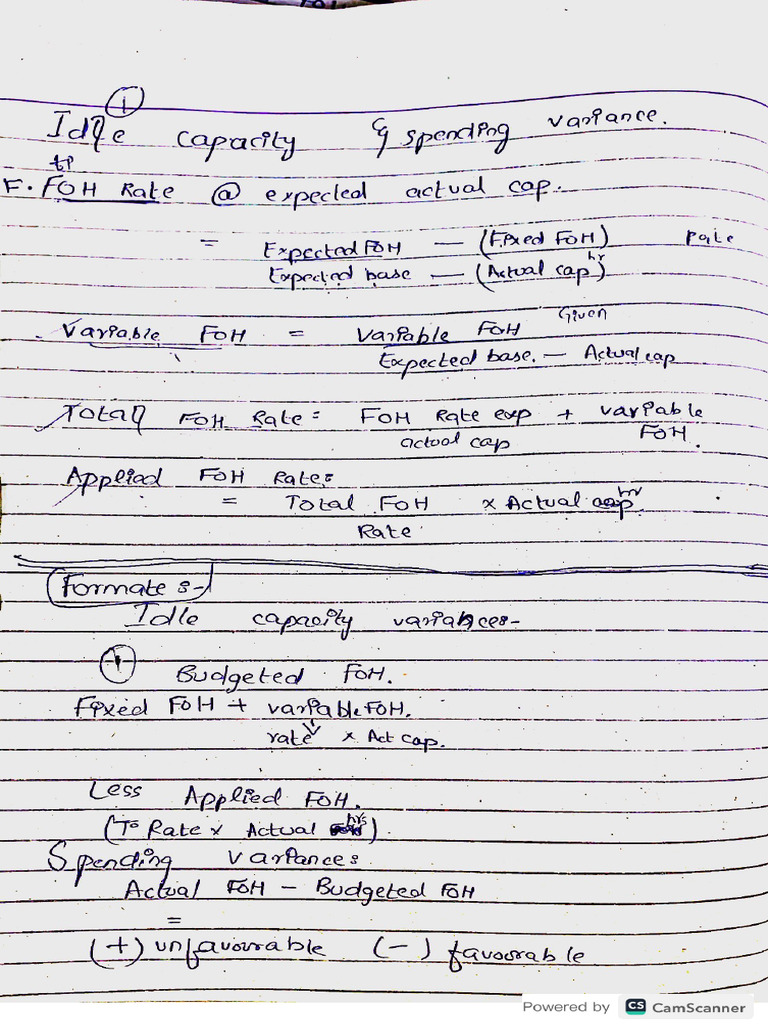 ①
Idle capacity & spending variance.
F. FOH Rate @ expected actual cap.
= Expected FOH — (Fixed FOH) Rate
Expected base — (Actual cap hr)
Variable FOH = Variable FOH Given
Expected base. — Actual cap
Total FOH Rate: FOH Rate exp + variable
actual cap FOH.
Applied FOH Rate:
= Total FOH x Actual cap hr
Rate
Formate :-
Idle capacity variances-
Budgeted FOH.
Fixed FOH + variable FOH.
rate x Act cap.
Less Applied FOH.
(To Rate x Actual hrs)
Spending Variance:
Actual FOH — Budgeted FOH
=
(+) unfavourable (-) favourable
Powered by CS CamScanner